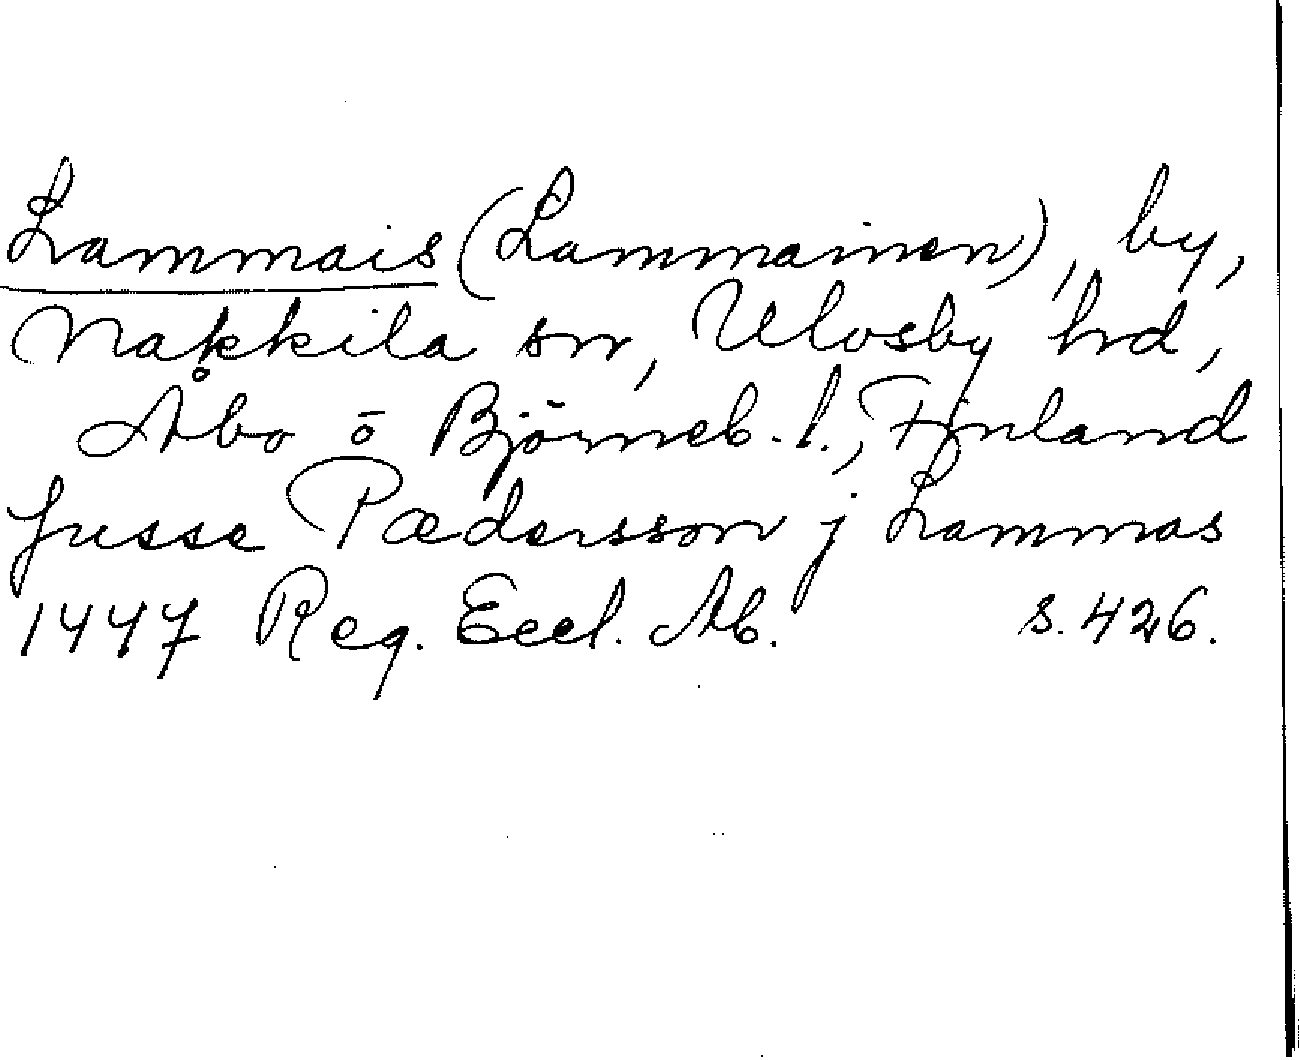 Lammais (Lammainen), by,
Nakkila sn, Ulvsby hrd,
Åbo o Björneb. l., Finland
Jusse Pædersson j Lammas
1447 Reg. Eccl. Ab. s. 426.